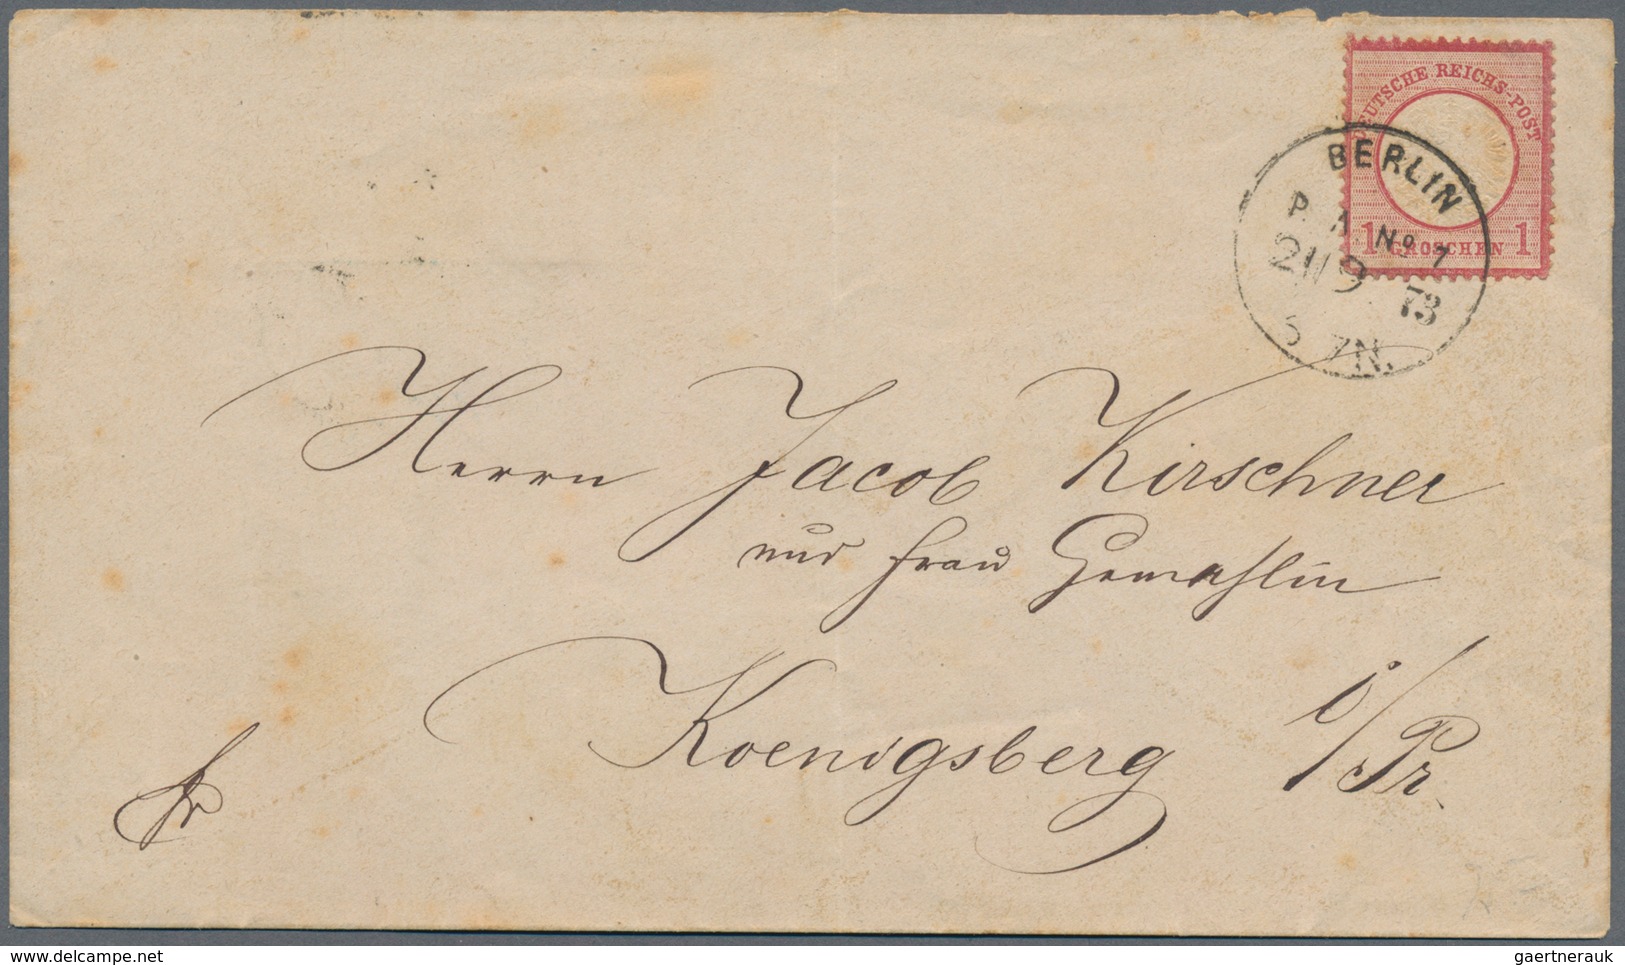 DEUTSCHE REICHS-POST
1 GROSCHEN 1
BERLIN
P. A. No 7
21/9 73
5 7N.
Herrn Jacob Kirschner
und Frau Gemahlin
Koenigsberg i/Pr.
fr
delcampe.net
gaertnerauk